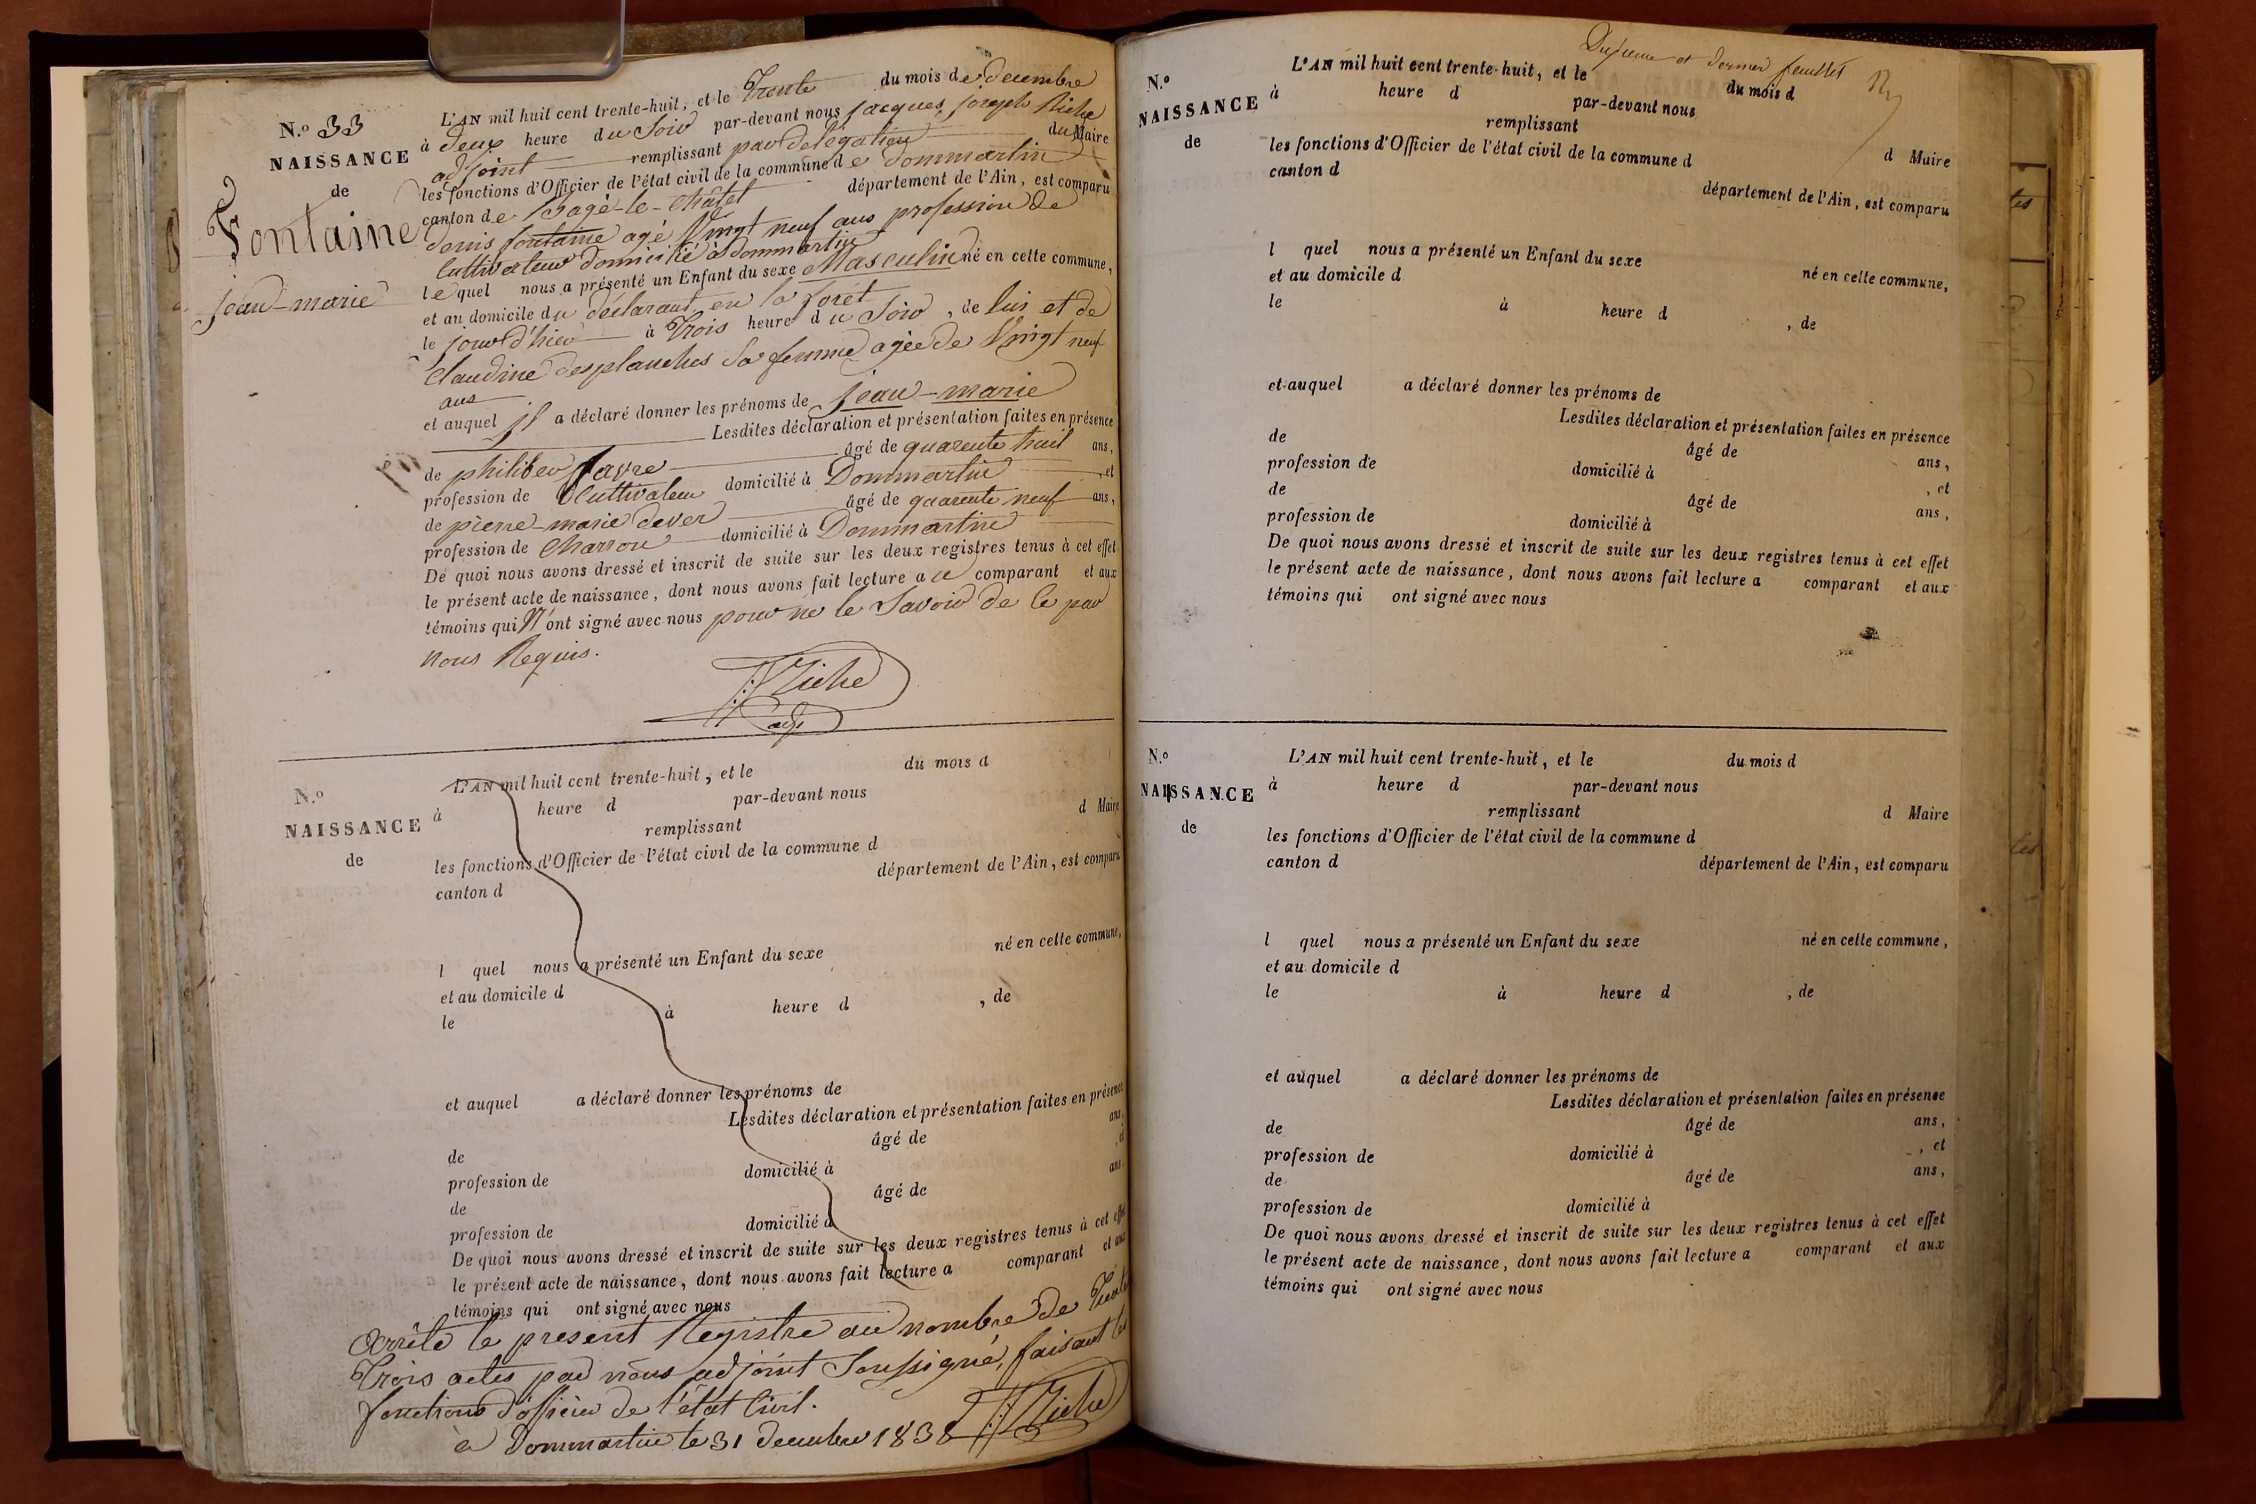 N.º 33
NAISSANCE
de
Fontaine
jean-marie
L'AN mil huit cent trente-huit, et le Trente du mois de decembre
à deux heure du Soir par-devant nous jacques joseph Riche
adjoint remplissant par délégation du Maire
les fonctions d'Officier de l'état civil de la commune de Dommartin
canton de Bagé-le-Châtel département de l'Ain, est comparu
denis fontaine agé Vingt neuf ans profession de
Cultivateur domicilié à Dommartin
lequel nous a présenté un Enfant du sexe Masculin né en cette commune,
et au domicile du déclarant en la forêt
le jour d'hier à Trois heure du Soir, de lui et de
Claudine desplanches Sa femme agée de Vingt neuf
ans
et auquel il a déclaré donner les prénoms de jean-marie
Lesdites déclaration et présentation faites en présence
de philiber favre âgé de quarente huit ans,
profession de Cultivateur domicilié à Dommartin, et
de pierre-marie daver âgé de quarente neuf ans,
profession de Charron domicilié à Dommartin
De quoi nous avons dressé et inscrit de suite sur les deux registres tenus à cet effet
le présent acte de naissance, dont nous avons fait lecture au comparant et aux
témoins qui N'ont signé avec nous pour ne le Savoir de Ce par
nous Requis.
Riche
adj
N.º
NAISSANCE
de
L'AN mil huit cent trente-huit, et le du mois d
à heure d par-devant nous
remplissant d Maire
les fonctions d'Officier de l'état civil de la commune d
canton d département de l'Ain, est comparu
l quel nous a présenté un Enfant du sexe né en cette commune,
et au domicile d
le à heure d , de
et auquel a déclaré donner les prénoms de
Lesdites déclaration et présentation faites en présence
de âgé de ans,
profession de domicilié à , et
de âgé de ans,
profession de domicilié à
De quoi nous avons dressé et inscrit de suite sur les deux registres tenus à cet effet
le présent acte de naissance, dont nous avons fait lecture a comparant et aux
témoins qui ont signé avec nous
Arrêté le présent Registre au nombre de Trente
Trois actes par nous adjoint Soussigné, faisant les
fonctions d'officier de l'état Civil.
à Dommartin le 31 decembre 1838 Riche
et dernier feuillet
N.º
NAISSANCE
de
L'AN mil huit cent trente-huit, et le du mois d
à heure d par-devant nous
remplissant d Maire
les fonctions d'Officier de l'état civil de la commune d
canton d département de l'Ain, est comparu
l quel nous a présenté un Enfant du sexe né en cette commune,
et au domicile d
le à heure d , de
et auquel a déclaré donner les prénoms de
Lesdites déclaration et présentation faites en présence
de âgé de ans,
profession de domicilié à , et
de âgé de ans,
profession de domicilié à
De quoi nous avons dressé et inscrit de suite sur les deux registres tenus à cet effet
le présent acte de naissance, dont nous avons fait lecture a comparant et aux
témoins qui ont signé avec nous
N.º
NAISSANCE
de
L'AN mil huit cent trente-huit, et le du mois d
à heure d par-devant nous
remplissant d Maire
les fonctions d'Officier de l'état civil de la commune d
canton d département de l'Ain, est comparu
l quel nous a présenté un Enfant du sexe né en cette commune,
et au domicile d
le à heure d , de
et auquel a déclaré donner les prénoms de
Lesdites déclaration et présentation faites en présence
de âgé de ans,
profession de domicilié à , et
de âgé de ans,
profession de domicilié à
De quoi nous avons dressé et inscrit de suite sur les deux registres tenus à cet effet
le présent acte de naissance, dont nous avons fait lecture a comparant et aux
témoins qui ont signé avec nous